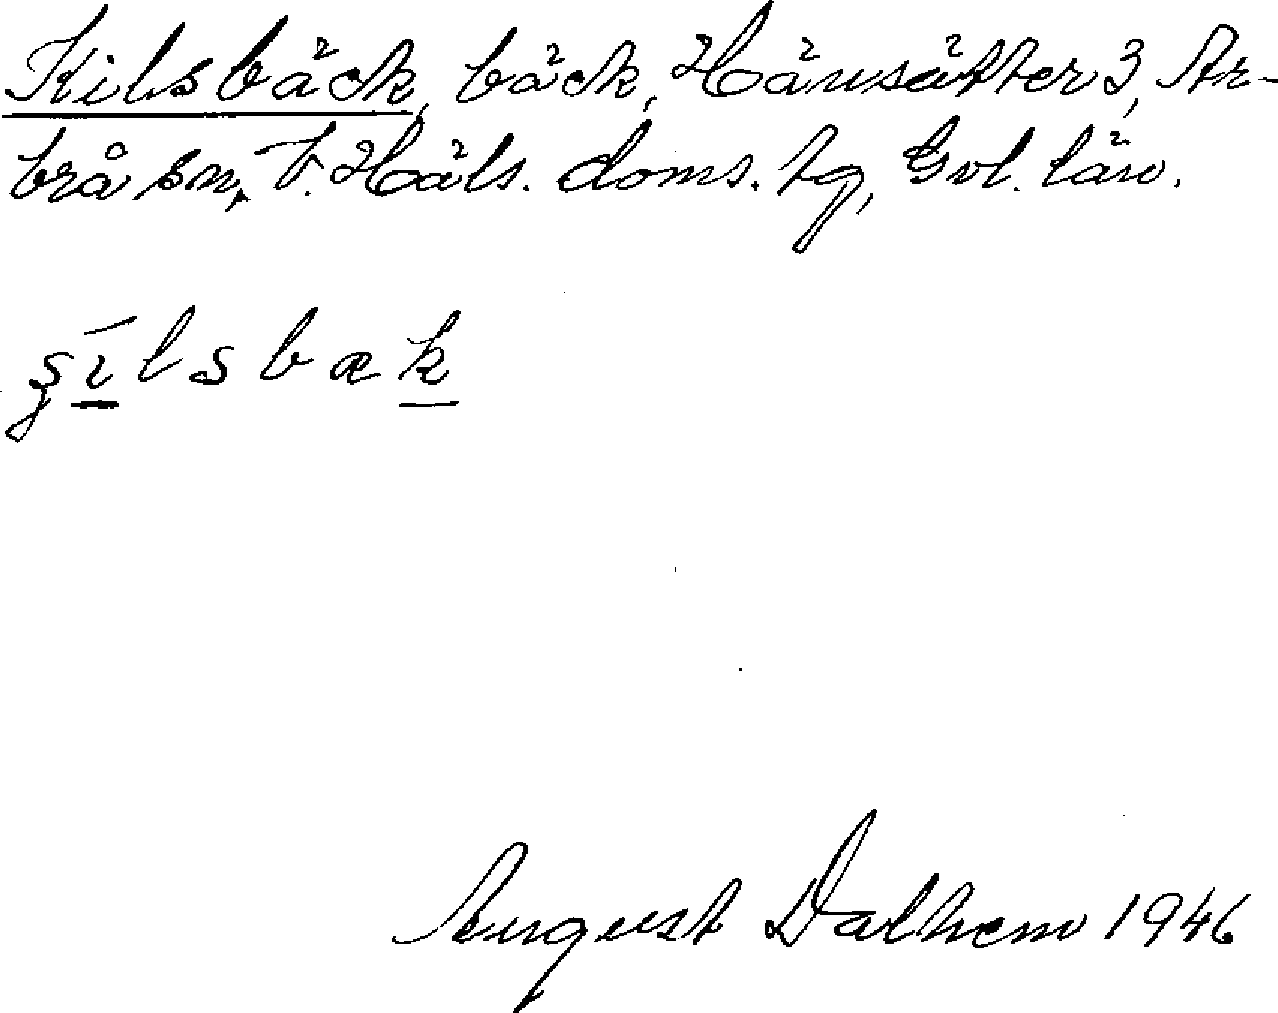 Kilsbäck, bäck, Hänsätter 3, Ar-
brå sn, V. Häls. doms. tg, Gvl. län.
ʂīlsbæk
August Dalhem 1946